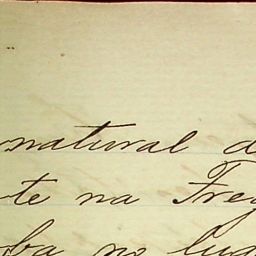 natural d
te na Freg
ba no lug